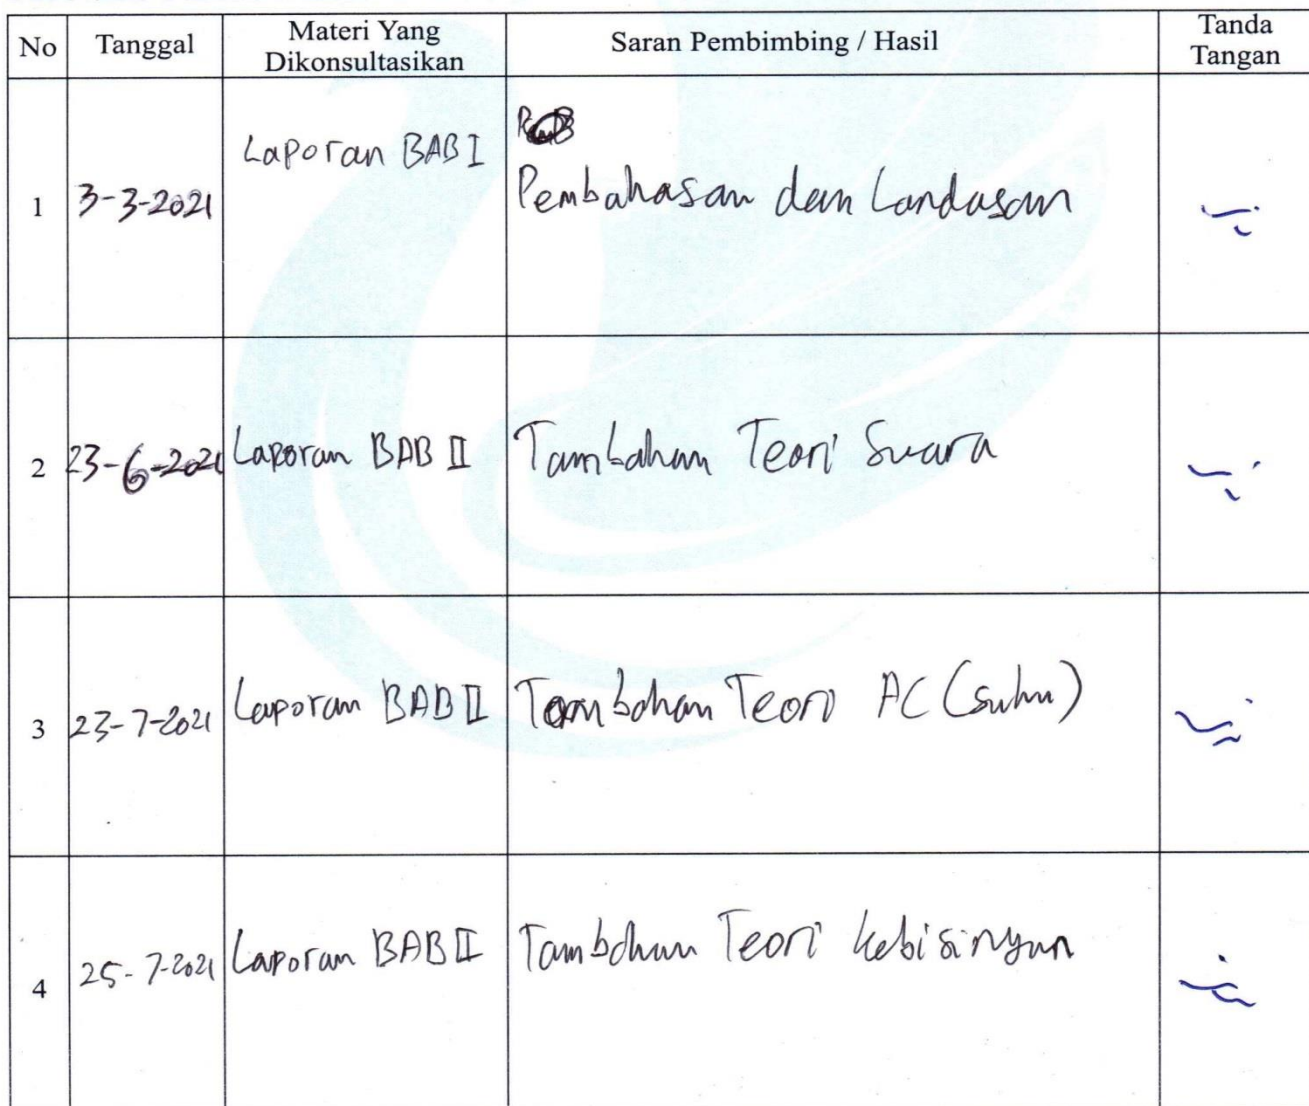 No Tanggal Materi Yang Dikonsultasikan Saran Pembimbing / Hasil Tanda Tangan
1 3-3-2021 Laporan BAB I Pembahasan dan Landasan
2 23-6-2021 Laporan BAB II Tambahan Teori Suara
3 23-7-2021 Laporan BAB II Tambahan Teori AC (suhu)
4 25-7-2021 Laporan BAB II Tambahan Teori kebisingan